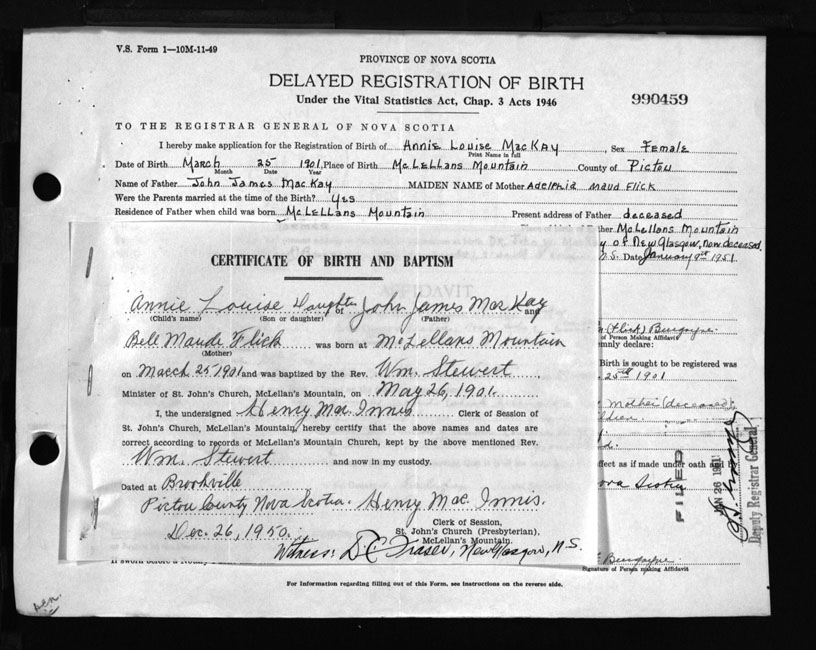 V.S. Form 1—10M-11-49
PROVINCE OF NOVA SCOTIA
DELAYED REGISTRATION OF BIRTH
Under the Vital Statistics Act, Chap. 3 Acts 1946
990459
TO THE REGISTRAR GENERAL OF NOVA SCOTIA
I hereby make application for the Registration of Birth of Annie Louise MacKay, Sex Female
Print Name in full
Date of Birth March 25 1901, Place of Birth McLellans Mountain County of Pictou
Month Date Year
Name of Father John James MacKay MAIDEN NAME of Mother Adelphia Maud Flick
Were the Parents married at the time of the Birth? Yes
Residence of Father when child was born McLellans Mountain Present address of Father deceased
ther McLellans Mountain
y of New Glasgow, now deceased.
N.S. Date January 9th 1951.
CERTIFICATE OF BIRTH AND BAPTISM
Annie Louise Daughter of John James MacKay and
(Child's name) (Son or daughter) (Father)
Bell Maude Flick was born at McLellans Mountain
(Mother)
on March 25 1901 and was baptized by the Rev. Wm. Stewert
Minister of St. John's Church, McLellan's Mountain, on May 26, 1901.
I, the undersigned Henry Mac Innis Clerk of Session of
St. John's Church, McLellan's Mountain, hereby certify that the above names and dates are
correct according to records of McLellan's Mountain Church, kept by the above mentioned Rev.
Wm. Stewert and now in my custody.
Dated at Brookville
Pictou County Nova Scotia. Henry Mac. Innis.
Clerk of Session,
St. John's Church (Presbyterian),
McLellan's Mountain.
Dec. 26, 1950.
Witness: D C Fraser, New Glasgow, N.S.
(Flick) Burgoyne.
of Person Making Affidavit
mnly declare:
Birth is sought to be registered was
25th 1901
Mother (deceased),
ffect as if made under oath and
ova Scotia
FILED
JAN 26 1951
Deputy Registrar General
Burgoyne
Signature of Person making Affidavit
For Information regarding filling out of this Form, see instructions on the reverse side.